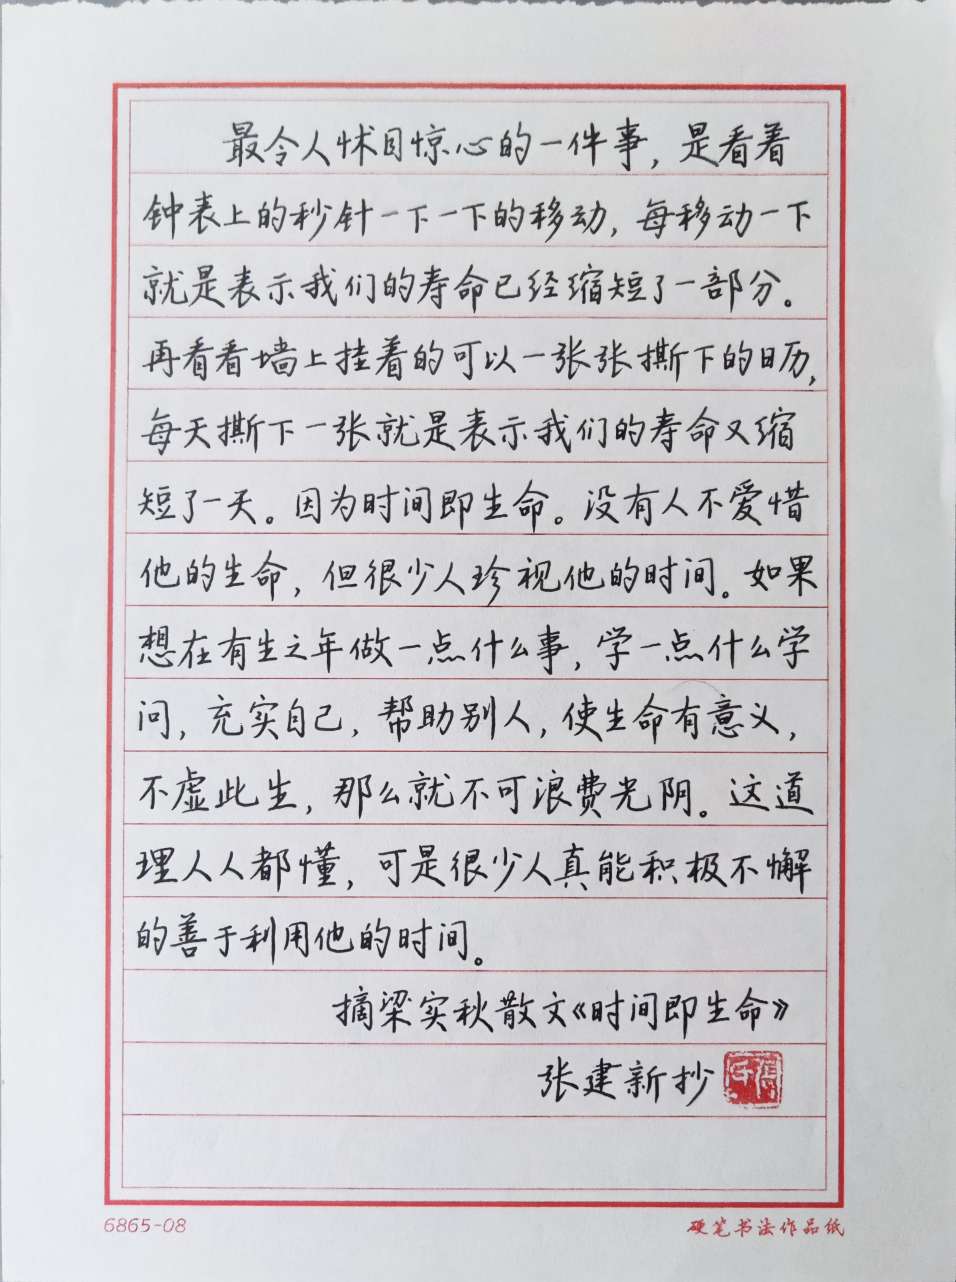 最令人怵目惊心的一件事，是看着
钟表上的秒针一下一下的移动，每移动一下
就是表示我们的寿命已经缩短了一部分。
再看看墙上挂着的可以一张张撕下的日历，
每天撕下一张就是表示我们的寿命又缩
短了一天。因为时间即生命。没有人不爱惜
他的生命，但很少人珍视他的时间。如果
想在有生之年做一点什么事，学一点什么学
问，充实自己，帮助别人，使生命有意义，
不虚此生，那么就不可浪费光阴。这道
理人人都懂，可是很少人真能积极不懈
的善于利用他的时间。
摘梁实秋散文《时间即生命》
张建新抄
6865-08
硬笔书法作品纸